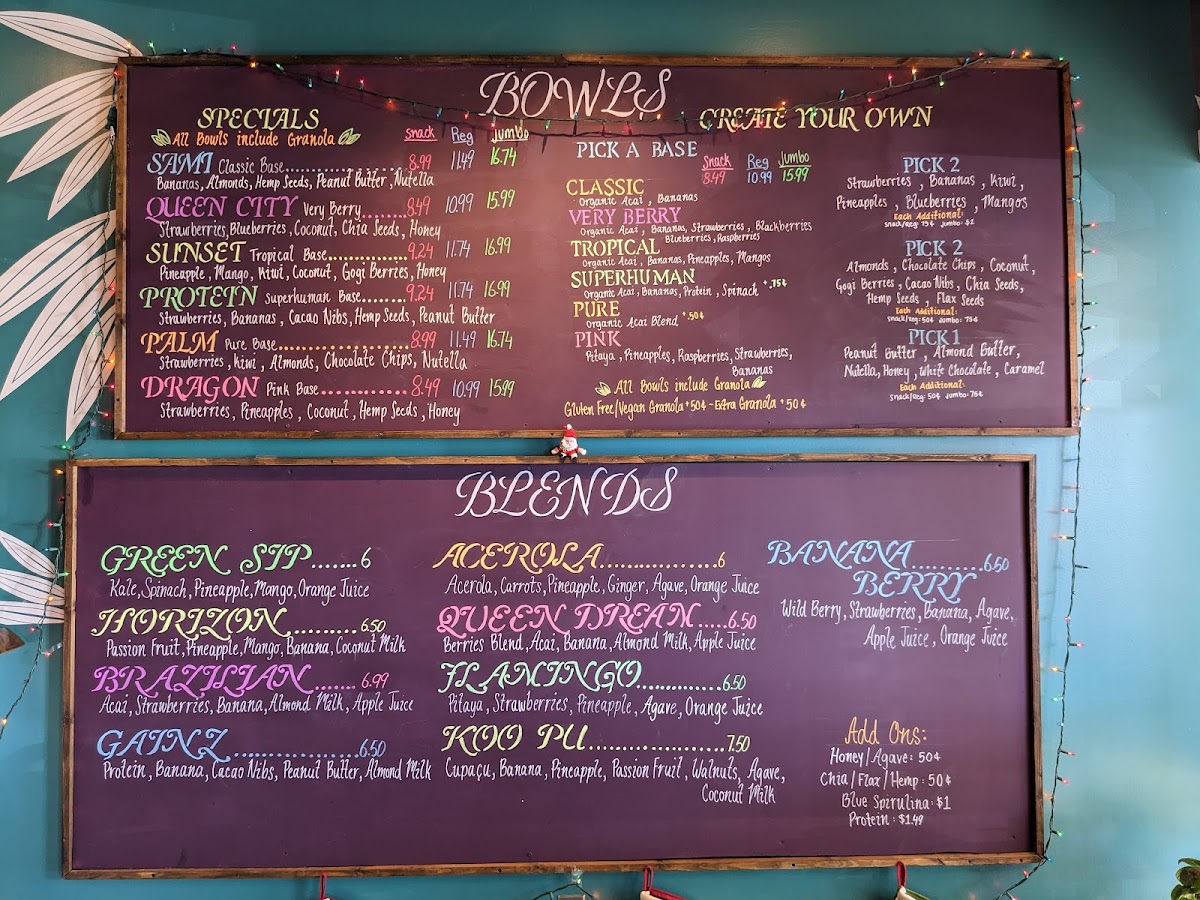 BOWLS
SPECIALS
All Bowls include Granola
Snack Reg Jumbo
SAMI Classic Base 8.99 11.49 16.74
Bananas, Almonds, Hemp Seeds, Peanut Butter, Nutella
QUEEN CITY Very Berry 8.49 10.99 15.99
Strawberries, Blueberries, Coconut, Chia Seeds, Honey
SUNSET Tropical Base 9.24 11.74 16.99
Pineapple, Mango, Kiwi, Coconut, Gogi Berries, Honey
PROTEIN Superhuman Base 9.24 11.74 16.99
Strawberries, Bananas, Cacao Nibs, Hemp Seeds, Peanut Butter
PALM Pure Base 8.99 11.49 16.74
Strawberries, Kiwi, Almonds, Chocolate Chips, Nutella
DRAGON Pink Base 8.49 10.99 15.99
Strawberries, Pineapples, Coconut, Hemp Seeds, Honey
CREATE YOUR OWN
PICK A BASE
Snack Reg Jumbo
8.49 10.99 15.99
CLASSIC
Organic Acai, Bananas
VERY BERRY
Organic Acai, Bananas, Strawberries, Blackberries
Blueberries, Raspberries
TROPICAL
Organic Acai, Bananas, Pineapples, Mangos
SUPERHUMAN
Organic Acai, Bananas, Protein, Spinach +.75¢
PURE
Organic Acai Blend +.50¢
PINK
Pitaya, Pineapples, Raspberries, Strawberries,
Bananas
All Bowls include Granola
Gluten Free/Vegan Granola +50¢ - Extra Granola +50¢
PICK 2
Strawberries, Bananas, Kiwi,
Pineapples, Blueberries, Mangos
Each Additional:
Snack/Reg: 75¢ Jumbo: $1
PICK 2
Almonds, Chocolate Chips, Coconut,
Gogi Berries, Cacao Nibs, Chia Seeds,
Hemp Seeds, Flax Seeds
Each Additional:
Snack/Reg: 50¢ Jumbo: 75¢
PICK 1
Peanut Butter, Almond Butter,
Nutella, Honey, White Chocolate, Caramel
Each Additional:
Snack/Reg: 50¢ Jumbo: 75¢
BLENDS
GREEN SIP......6
Kale, Spinach, Pineapple, Mango, Orange Juice
HORIZON..........6.50
Passion Fruit, Pineapple, Mango, Banana, Coconut Milk
BRAZILIAN.......6.99
Acai, Strawberries, Banana, Almond Milk, Apple Juice
GAINZ..................6.50
Protein, Banana, Cacao Nibs, Peanut Butter, Almond Milk
ACEROLA.................6
Acerola, Carrots, Pineapple, Ginger, Agave, Orange Juice
QUEEN DREAM.....6.50
Berries Blend, Acai, Banana, Almond Milk, Apple Juice
FLAMINGO............6.50
Pitaya, Strawberries, Pineapple, Agave, Orange Juice
KOO PU...................7.50
Cupaçu, Banana, Pineapple, Passion Fruit, Walnuts, Agave,
Coconut Milk
BANANA..........6.50
BERRY
Wild Berry, Strawberries, Banana, Agave,
Apple Juice, Orange Juice
Add Ons:
Honey/Agave: 50¢
Chia/Flax/Hemp: 50¢
Blue Spirulina: $1
Protein: $1.49